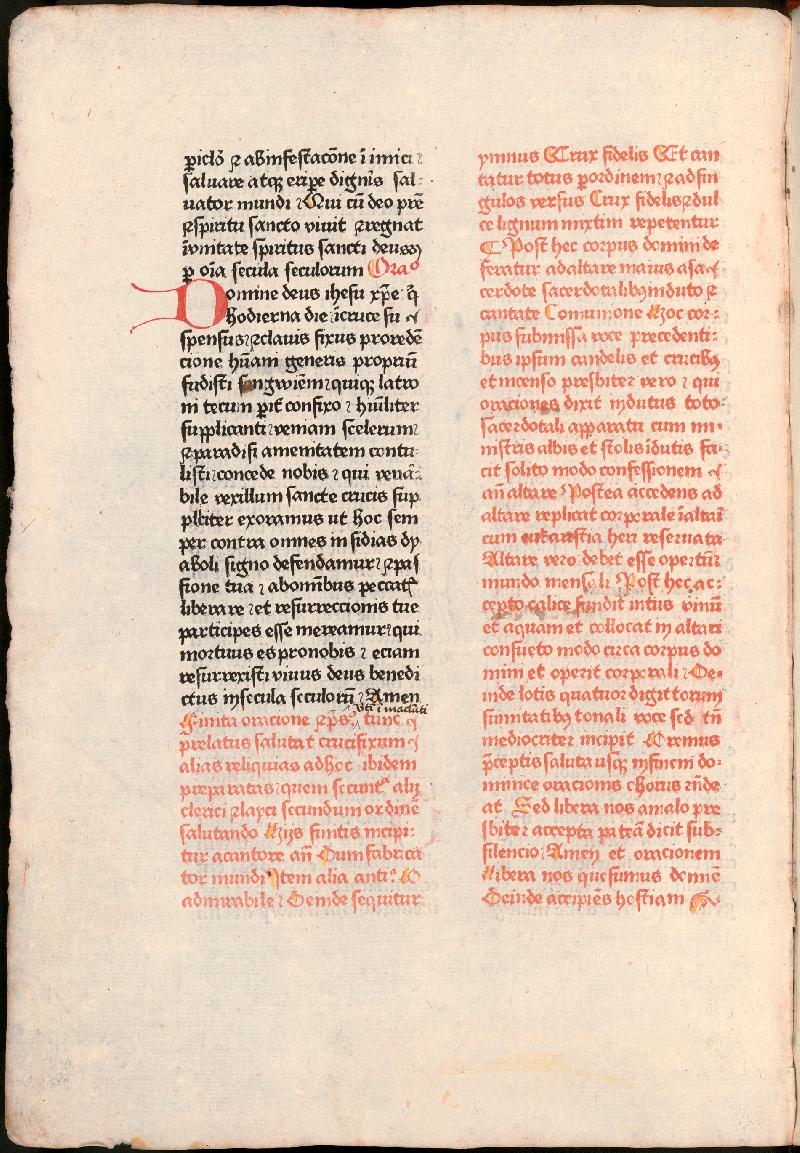 ꝑiclõ ⁊ ab infestacõne i imici
saluare atqꝫ eripe digniˢ sal-
uator mundi Qui cū deo pr̄e
⁊ spiritu sancto viuit ⁊ regnat
in vnitate spiritus sancti deus
ꝑ oīa secula seculorum Oraᵒ
Domine deus ihesu xp̄e q̄
hodierna die ī cruce su
spensus ⁊ clauis fixus pro redē
cione hūam generis propriū
fudisti sangwīem quiqꝫ latro
ni tecum ꝑit̄ confixo hūiliter
supplicanti veniam scelerum
⁊ paradisi amenitatem contu-
listi concede nobis qui venā-
bile vexillum sancte crucis sup
pl̄iciter exoramus ut hoc sem
per contra omnes insidias dy
aboli signo defendamur ⁊ pas
sione tua abom̄ibus peccatˢ
liberare et resurreccionis tue
participes esse mereamur qui
mortuus es pro nobis eciam
resurrexisti viuus deus benedi
ctus in secula seculorū Amen
sti īmadati
Finita oracione ⁊ p̄s tunc
prelatus salutat crucifixum
alias reliquias ad hoc ibidem
preparatas quem secunt̄ alij
clerici ⁊ layci secundum ordinē
salutando Hijs finitis incipi-
tur a cantore an̄ Cum fabrica
tor mundi Item alia anti O
admirabile Deinde sequitur
ymnus Crux fidelis Et can
tatur totus ꝑ ordinem ⁊ ad sin
gulos versus Crux fidelis ⁊ dul
ce lignum mixtim repetentur
Post hec corpus domini de
feratur ad altare maius a sa
cerdote sacerdotalibꝫ induto ⁊
cantate Comunione Hoc cor-
pus submissa voce precedenti-
bus ipsum candelis et crucibꝫ
et incenso presbiter vero qui
oraciones dixit indutus toto
sacerdotali apparatu cum mi-
nistris albis et stolis īdutis fa-
cit solito modo confessionem
an̄ altare Postea accedens ad
altare replicat corporale ī altaī
cum eukaristia heri reseruata
Altare vero debet esse opertū
mundo mensali Post hec ac-
cepto calice fundit intus vinū
et aquam et collocat in altari
consueto modo circa corpus do
mini et operit corporali De-
inde lotis quatuor digitorum
sumitatibꝫ tonali voce sed tn̄
mediocriter incipit Oremus
p̄ceptis saluta usqꝫ in finem do-
minice oracionis chorus rn̄de
at Sed libera nos a malo pre
sbiter accepta patēa dicit sub-
silencio Amen et oracionem
Libera nos quesumus domīe
Deinde accipiēs hostiam